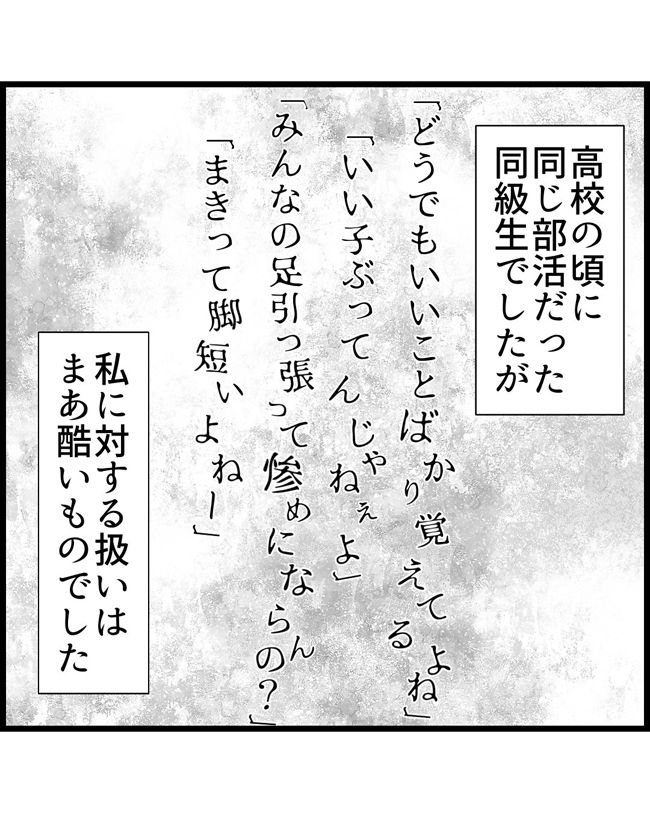 高校の頃に
同じ部活だった
同級生でしたが
「どうでもいいことばかり覚えてるよね」
「いい子ぶってんじゃねぇよ」
「みんなの足引っ張って惨めにならんの？」
「まきって脚短いよねー」
私に対する扱いは
まあ酷いものでした